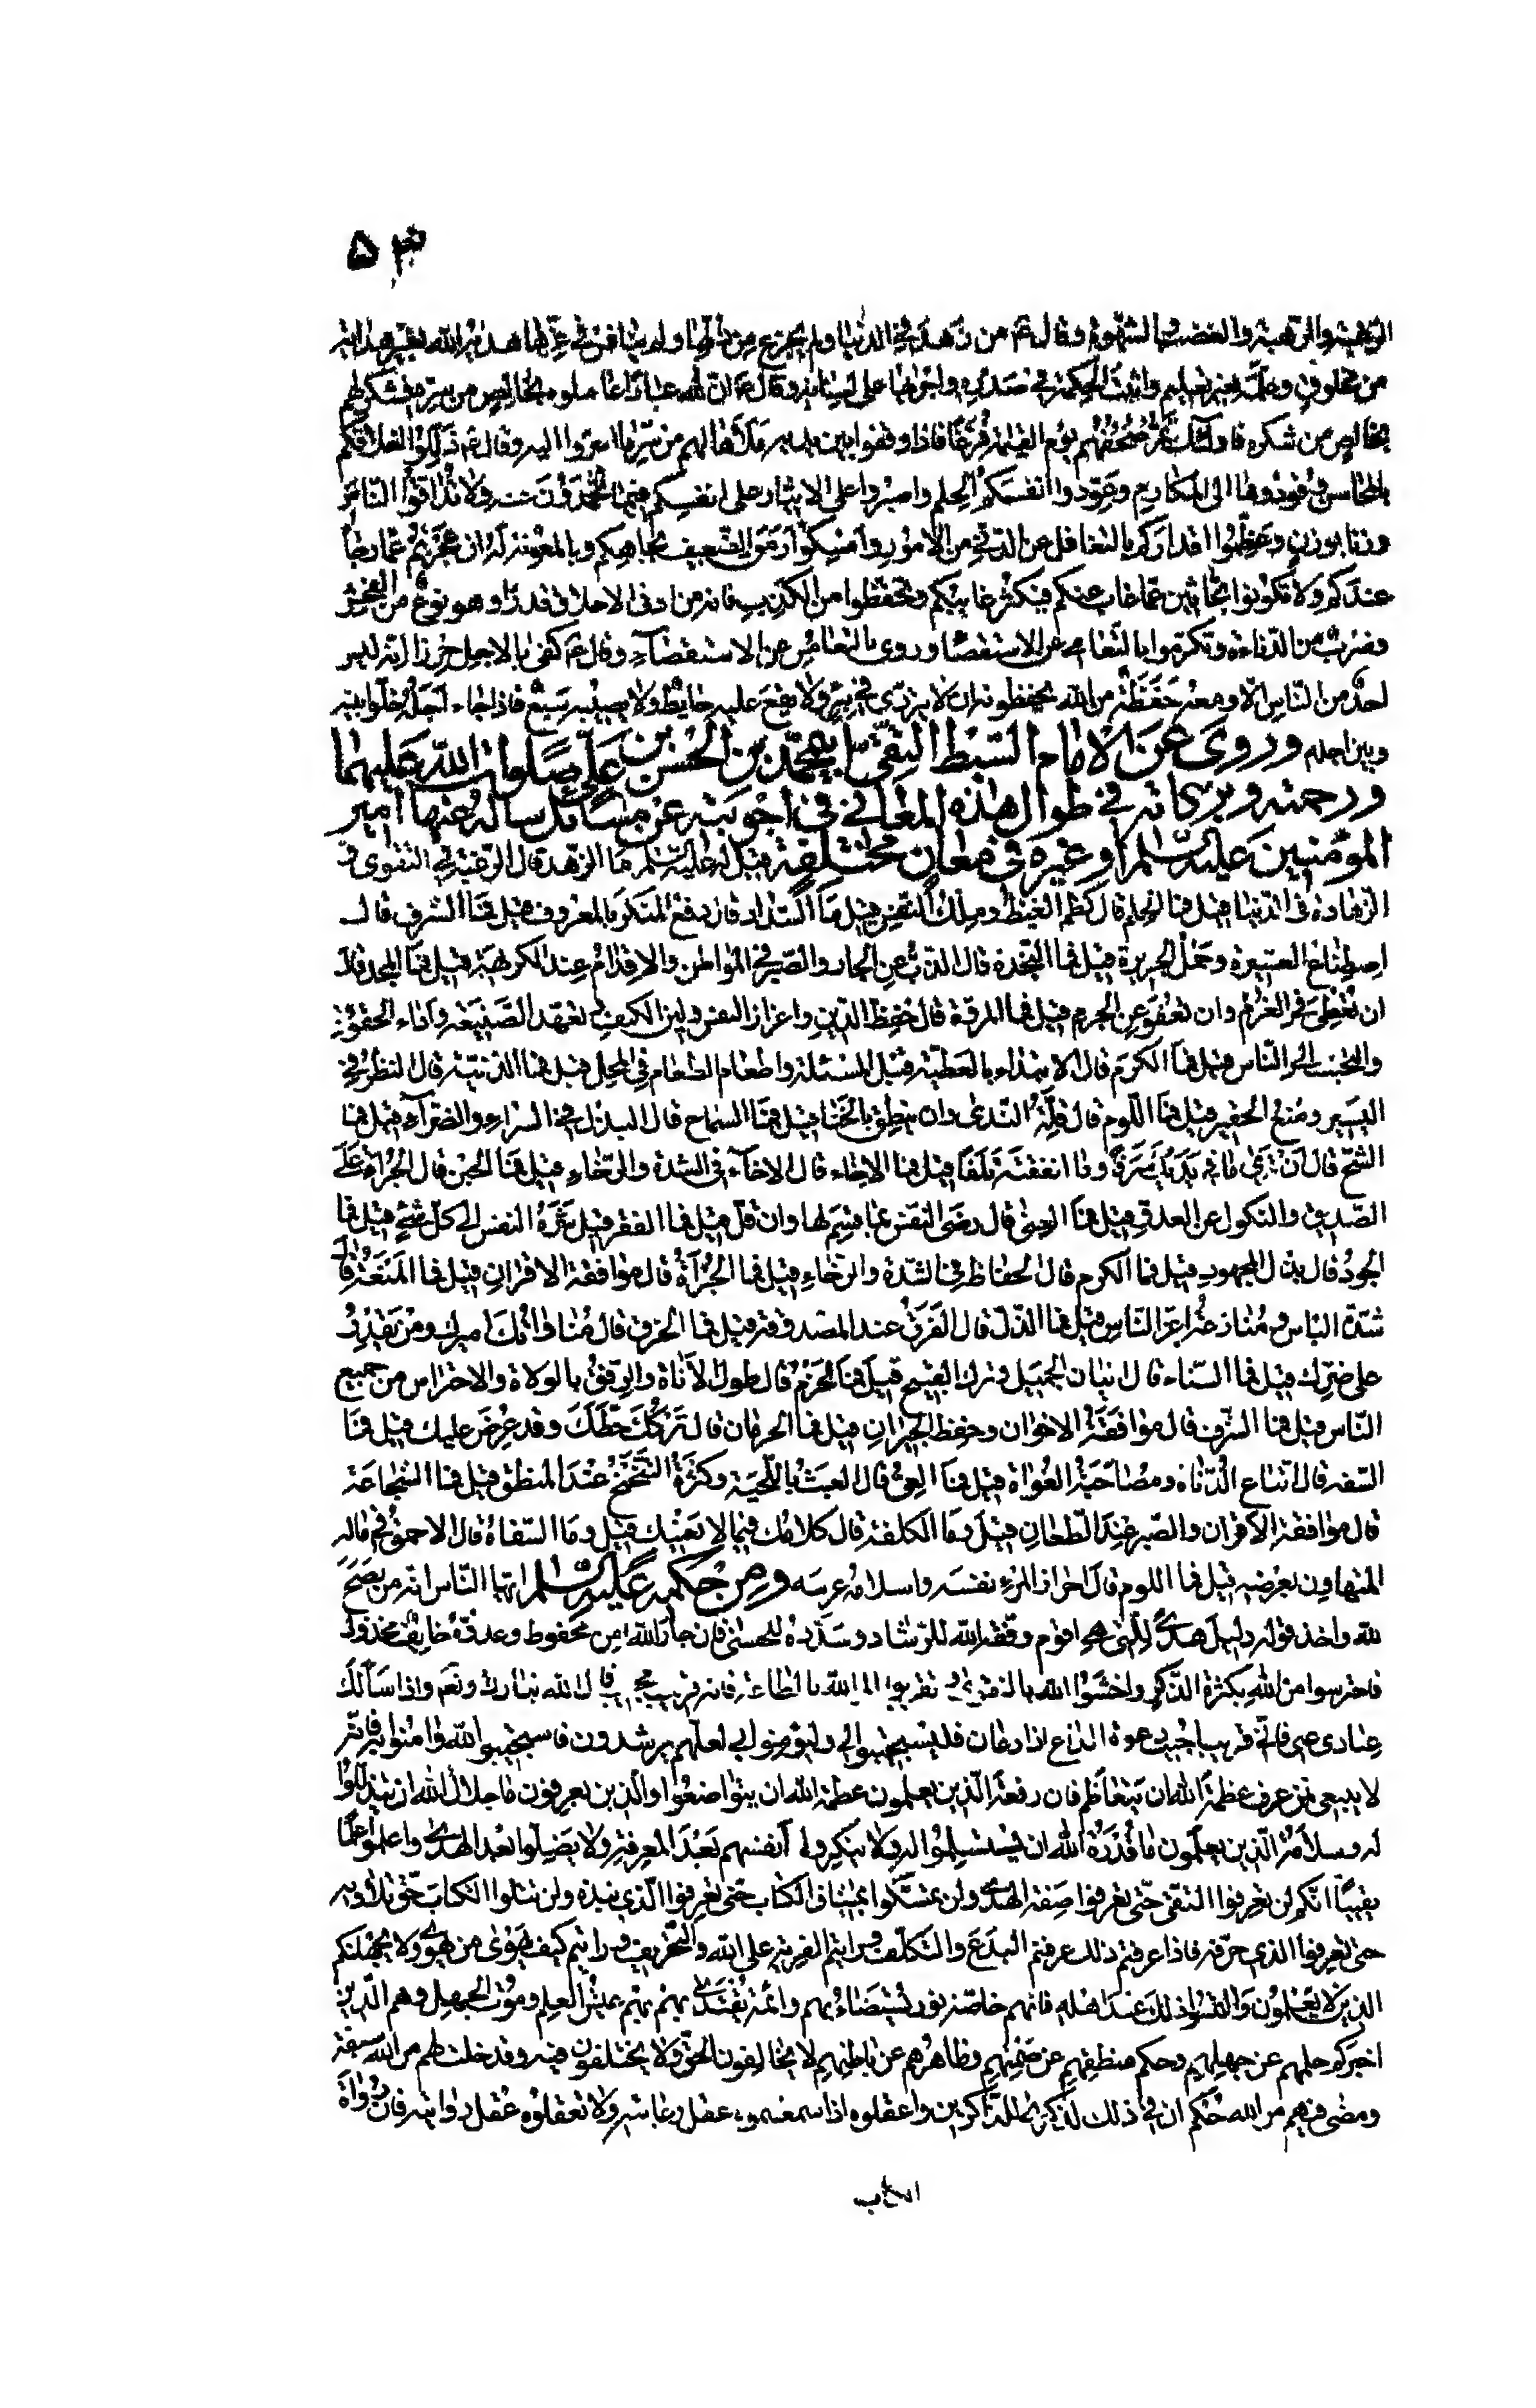 ۵۳
الرغبة والرهبة والغضب والشهوة وقال ع من زهد في الدنيا ولم يجزع من ذلها ولم ينافس في عزها هداه الله بغير هداية
من مخلوق وعلمه بغير تعليم واثبت الحكمة في صدره واجراها على لسانه وقال ع ان لله عبادا عاملوه بخالص من سره فشكر لهم
بخالص من شكره فاولئك تمر صحفهم يوم القيمة فرغا فاذا وقفوا بين يديه ملأها لهم من سر ما اسروا اليه وقال ع ذللوا اخلاقكم
بالمحاسن وقودوها الى المكارم وعودوا انفسكم الحلم واصبروا على الايثار على انفسكم فيما تحمدون عنه ولا تداقوا الناس
وزنا بوزن وعظموا اقداركم بالتغافل عن الدني من الامور وامسكوا رمق الضعيف بجاهكم وبالمعونة له ان عجزتم عما رجاه
عندكم ولا تكونوا بحاثين عما غاب عنكم فيكثر غايبكم وتحفظوا من الكذب فانه من ادنى الاخلاق قدرا وهو نوع من الفحش
وضرب من الدناءة وتكرموا بالتعامي عن الاستقصا وروى بالتعامس عن الاستقصاء وقال ع كفى بالاجل حرزا انه ليس
احد من الناس الا ومعه حفظة من الله يحفظونه ان لا يتردى في بئر ولا يقع عليه حايط ولا يصيبه سبع فاذا جاء اجله خلوا بينه
وبين اجله وروى عن الامام السبط التقي ابي محمد الحسن بن علي صلوات الله عليهما
ورحمته وبركاته في طوال هذه المعاني في اجوبته عن مسائل سأله عنها امير
المؤمنين عليه السلم او غيره في معان مختلفة قيل له عليه السلم ما الزهد قال الرغبة في التقوى و
الزهادة في الدنيا قيل فما الحلم قال كظم الغيظ وملك النفس قيل ما السداد قال دفع المنكر بالمعروف قيل فما الشرف قال
اصطناع العشيرة وحمل الجريرة قيل فما النجدة قال الذب عن الجار والصبر في المواطن والاقدام عند الكريهة قيل فما المجد قال
ان تعطى في الغرم وان تعفو عن الجرم قيل فما المروة قال حفظ الدين واعزاز النفس ولين الكنف وتعهد الصنيعة واداء الحقوق
والتحبب الى الناس قيل فما الكرم قال الابتداء بالعطية قبل المسئلة واطعام الطعام في المحل قيل فما الدنية قال النظر في
اليسير ومنع الحقير قيل فما اللوم قال قلة الندى وان ينطق بالخنا قيل فما السماح قال البذل في السراء والضراء قيل فما
الشح قال ان ترى ما في يديك شرفا وما انفقته تلفا قيل فما الاخاء قال الاخاء في الشدة والرخاء قيل فما الجبن قال الجرأة على
الصديق والنكول عن العدو قيل فما الغنى قال رضى النفس بما قسم لها وان قل قيل فما الفقر قيل شره النفس الى كل شئ قيل فما
الجود قال بذل المجهود قيل فما الكرم قال الحفاظ في الشدة والرخاء قيل فما الجرأة قال موافقة الاقران قيل فما المنعة قال
شدة الباس ومنازعة اعز الناس قيل فما الذل قال الفرق عند المصدوقة قيل فما الخرق قال مناواتك اميرك ومن يقدر
على ضرك قيل فما السناء قال اتيان الجميل وترك القبيح قيل فما الحزم قال طول الاناة والرفق بالولاة والاحتراس من جميع
الناس قيل فما الشرف قال موافقة الاخوان وحفظ الجيران قيل فما الحرمان قال تركك حظك وقد عرض عليك قيل فما
السفه قال اتباع الدناة ومصاحبة الغواة قيل فما العي قال العبث باللحية وكثرة التنحنح عند المنطق قيل فما الشجاعة
قال موافقة الاقران والصبر عند الطعان قيل وما الكلفة قال كلامك فيما لا يعنيك قيل وما السفاه قال الاحمق في ماله
المتهاون بعرضه قيل فما اللوم قال احراز المرء نفسه واسلامه عرسه ومن حكمه عليه السلم ايها الناس انه من نصح
لله واخذ قوله دليلا هدى للتي هي اقوم وفقه الله للرشاد وسدده للحسنى فان جار الله امن محفوظ وعدوه خايف مخذول
فاحترسوا من الله بكثرة الذكر واخشوا الله بالتقوى وتقربوا الى الله بالطاعة فانه قريب مجيب قال الله تبارك وتعم واذا سألك
عبادى عنى فانى قريب اجيب دعوة الداع اذا دعان فليستجيبوا لي وليؤمنوا بي لعلهم يرشدون فاستجيبوا لله وامنوا به فانه
لا ينبغى لمن عرف عظمة الله ان يتعاظم فان رفعة الذين يعلمون عظمة الله ان يتواضعوا والذين يعرفون ما جلال الله ان يتذللوا
له وسلامة الذين يعلمون ما قدرة الله ان يستسلموا له ولا ينكروا انفسهم بعد المعرفة ولا يضلوا بعد الهدى واعلموا علما
يقينا انكم لن تعرفوا التقى حتى تعرفوا صفة الهدى ولن تمسكوا بميثاق الكتاب حتى تعرفوا الذى نبذه ولن تتلوا الكتاب حق تلاوته
حتى تعرفوا الذى حرفه فاذا عرفتم ذلك عرفتم البدع والتكلف ورأيتم الفرية على الله والتحريف ورأيتم كيف يهوى من يهوى ولا يجهلنكم
الذين لا يعلمون والتمسوا ذلك عند اهله فانهم خاصة نور يستضاء بهم وائمة يقتدى بهم بهم عيش العلم وموت الجهل وهم الذين
اخبركم حلمهم عن جهلهم وحكم منطقهم عن صمتهم وظاهرهم عن باطنهم لا يخالفون الحق ولا يختلفون فيه وقد خلت لهم من الله سنة
ومضى فيهم من الله حكم ان في ذلك لذكرى للذاكرين واعقلوه اذا سمعتموه عقل رعاية ولا تعقلوه عقل رواية فان رواة
الكتاب